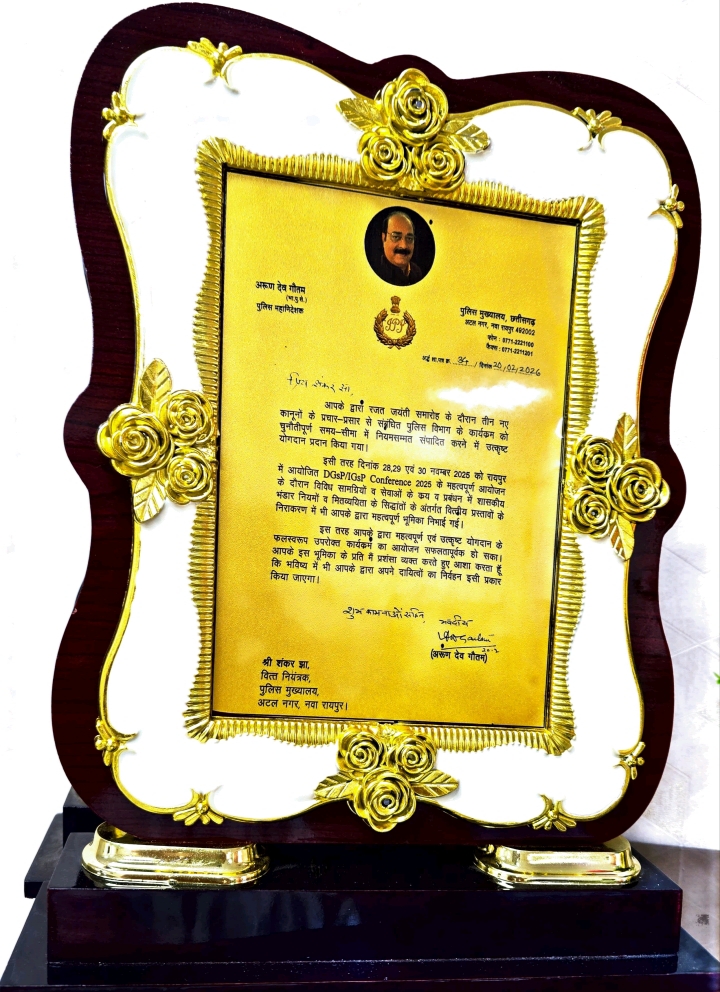 अरूण देव गौतम
(भा.पु.से.)
पुलिस महानिदेशक
पुलिस मुख्यालय, छत्तीसगढ़
अटल नगर, नवा रायपुर 492002
फोन : 0771-2221100
फैक्स : 0771-2211201
अर्द्ध शा.पत्र क्र. 34 / दिनांक 20/02/2026
प्रिय शंकर झा,
आपके द्वारा रजत जयंती समारोह के दौरान तीन नए
कानूनों के प्रचार–प्रसार से संबंधित पुलिस विभाग के कार्यक्रम को
चुनौतीपूर्ण समय–सीमा में नियमसम्मत संपादित करने में उत्कृष्ट
योगदान प्रदान किया गया।
इसी तरह दिनांक 28,29 एवं 30 नवम्बर 2025 को रायपुर
में आयोजित DGsP/IGsP Conference 2025 के महत्वपूर्ण आयोजन
के दौरान विविध सामग्रियों व सेवाओं के क्रय व प्रबंधन में शासकीय
भंडार नियमों व मितव्ययिता के सिद्धांतों के अंतर्गत वित्तीय प्रस्तावों के
निराकरण में भी आपके द्वारा महत्वपूर्ण भूमिका निभाई गई।
इस तरह आपके द्वारा महत्वपूर्ण एवं उत्कृष्ट योगदान के
फलस्वरूप उपरोक्त कार्यक्रम का आयोजन सफलतापूर्वक हो सका।
आपके इस भूमिका के प्रति मैं प्रशंसा व्यक्त करते हुए आशा करता हूँ
कि भविष्य में भी आपके द्वारा अपने दायित्वों का निर्वहन इसी प्रकार
किया जाएगा।
शुभकामनाओं सहित,
भवदीय
(अरूण देव गौतम)
श्री शंकर झा,
वित्त नियंत्रक,
पुलिस मुख्यालय,
अटल नगर, नवा रायपुर।